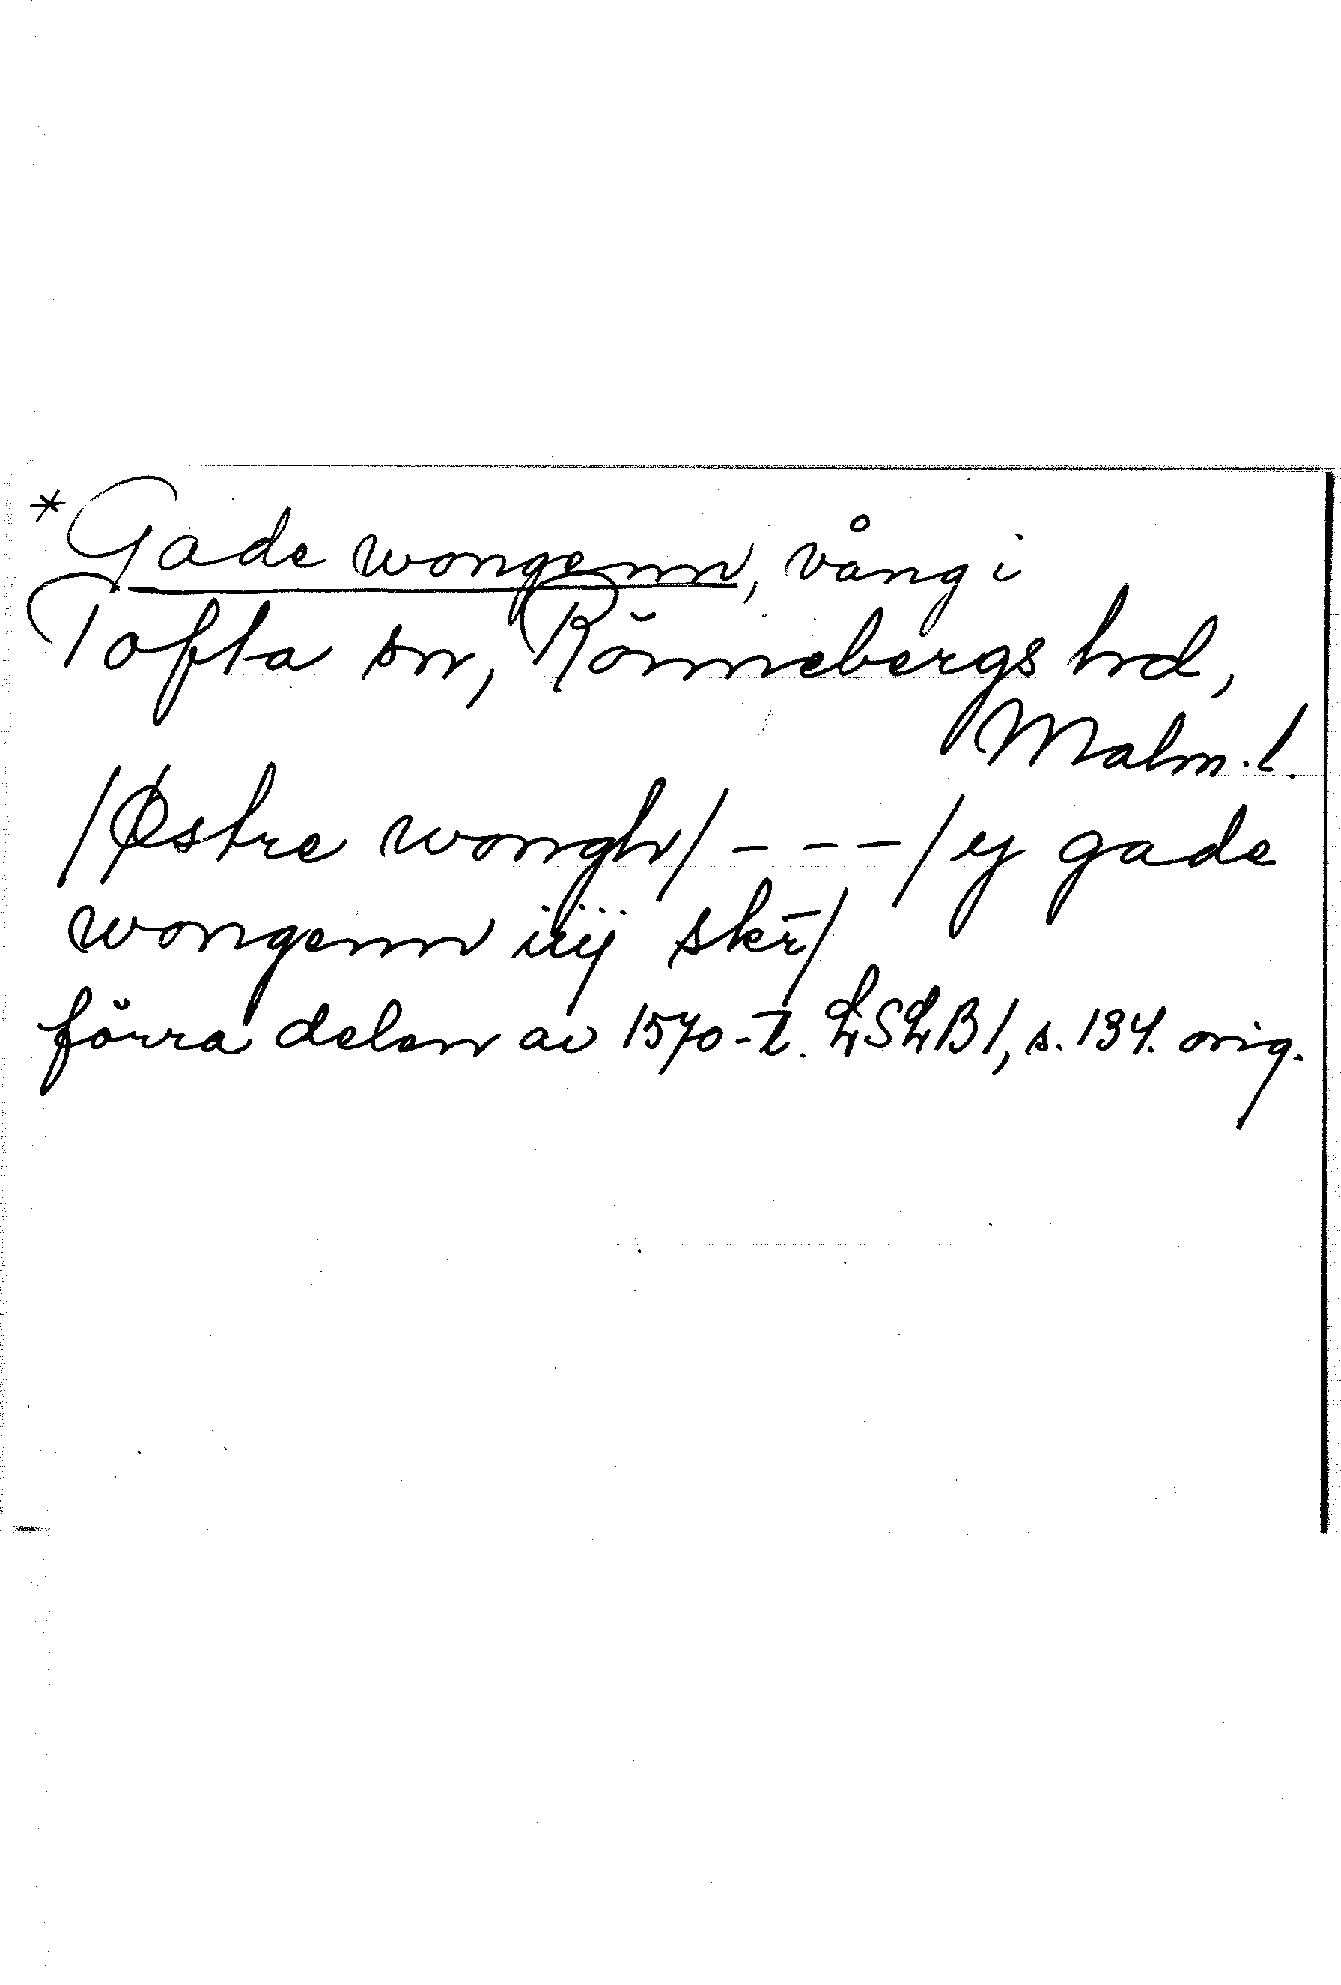 *Gade wongenn, vång i
Tofta sn, Rönnebergs hd,
Malm. l.
/Østre wongh/ - - - /ij gade
wongenn iiij skr̄/
förra delen av 1570-t. LSLB1, s. 134. orig.